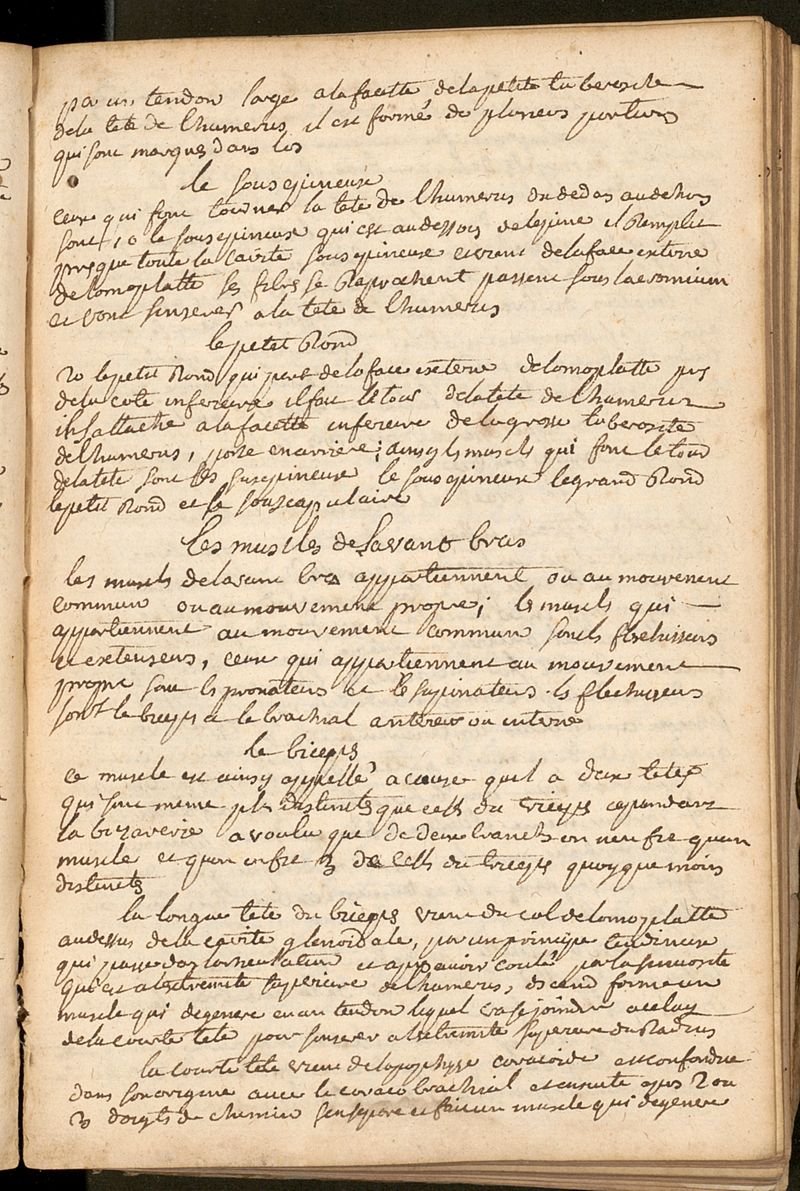 par un tendon large a la facette de la petite tuberosite
de la tete de lhumerus il est formé de plusieurs portions
qui sont marqués dans los
le sousepineuse
ceux qui font tourner la tete de lhumerus du dedas au dehors
sont 1o le sousepineux qui est audessous de lepine il Remplit
presque toute la cavite sousepineuse et vient de la face externe
de lomoplatte ses fibres se Raprochent passent sous lacromium
et vont sinserer a la tete de lhumerus
le petit Rond
2o le petit Rond qui part de la face externe de lomoplatte pres
de la cote inferieure il fait le tour de la tete de lhumerus
il sattache a la facette inferieure de la grosse tuberosite
de lhumerus, porte en arriere; ainsy les muscles qui font le tour
de la tete sont les susepineuse le sousepineux le grand Rond
le petit Rond et le souscapulaire
Les muscles de Lavant bras
les muscls de lavant bras appartiennent ou au mouvement
commun ou au mouvement propre; les muscls qui
appartiennent au mouvement commun sont les flechisseurs
et extenseurs, ceux qui appartiennent au mouvement
propre sont les pronateurs et les supinateurs. les flechisseurs
sont le biceps et le brachial anterieur ou interne
le biceps
ce muscle est ainsy appellé a cause quil a deux tetes
qui sont meme plus distinctes que celles du triceps cependant
la bizaverie a voulu que de deux branches on neu fit quun
muscle et quon en fit 3 de celles du triceps quoyque moins
distinctes
la longue tete du biceps vient du col de lomoplatte
audessus de la cavite glenoidale, par un principe tendineux
qui passe dans larticulation et apres avoir coulé par la sinuosite
qui est a lextremite superieure de lhumerus, descend forme un
muscle qui degenere en un tendon lequel va se joindre a celuy
de la courte tete pour sinserer a lextremite superieure du Radius
la courte tete vient de lapophyse coracoide est confondue
dans son origine avec le coraco brachial et ensuite apres 2 ou
3 doigts de chemin sen separe et fait un muscle qui degenere